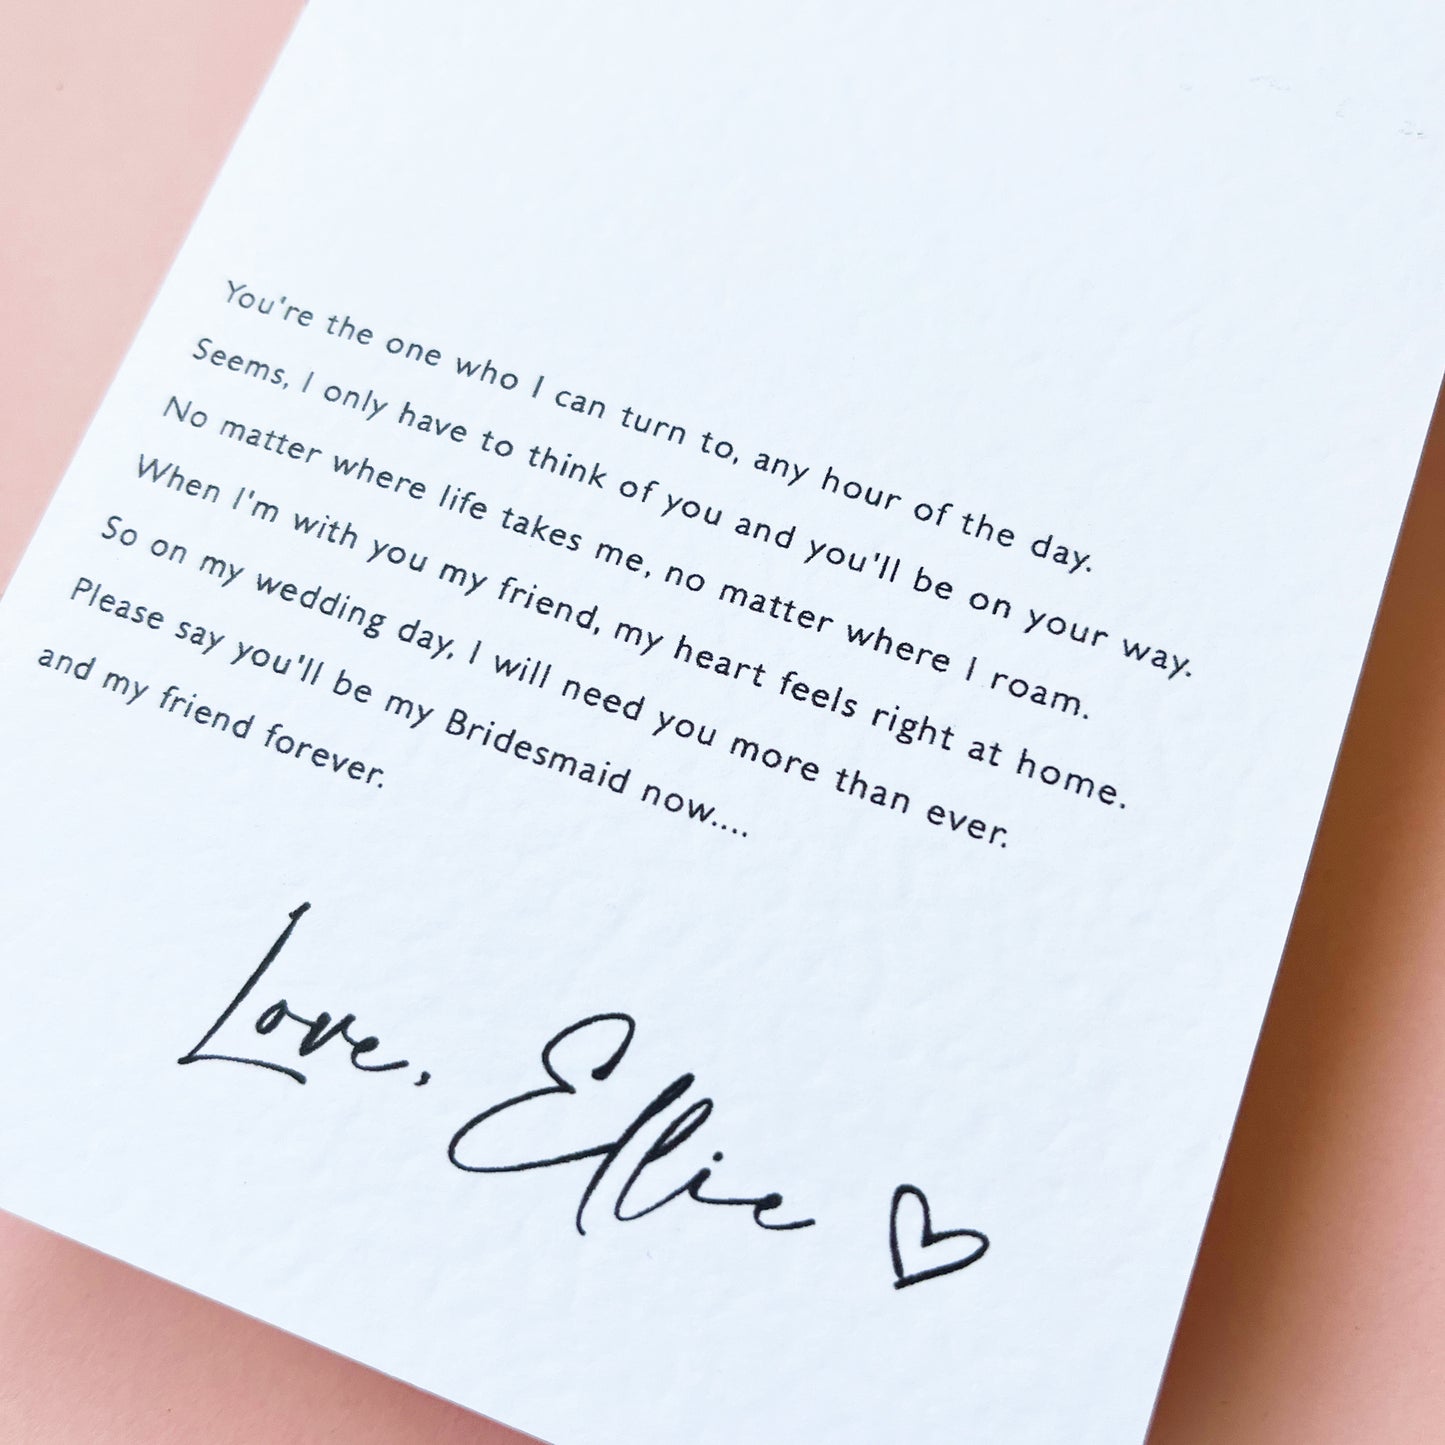 You're the one who I can turn to, any hour of the day.
Seems, I only have to think of you and you'll be on your way.
No matter where life takes me, no matter where I roam.
When I'm with you my friend, my heart feels right at home.
So on my wedding day, I will need you more than ever.
Please say you'll be my Bridesmaid now....
and my friend forever.
Love, Ellie